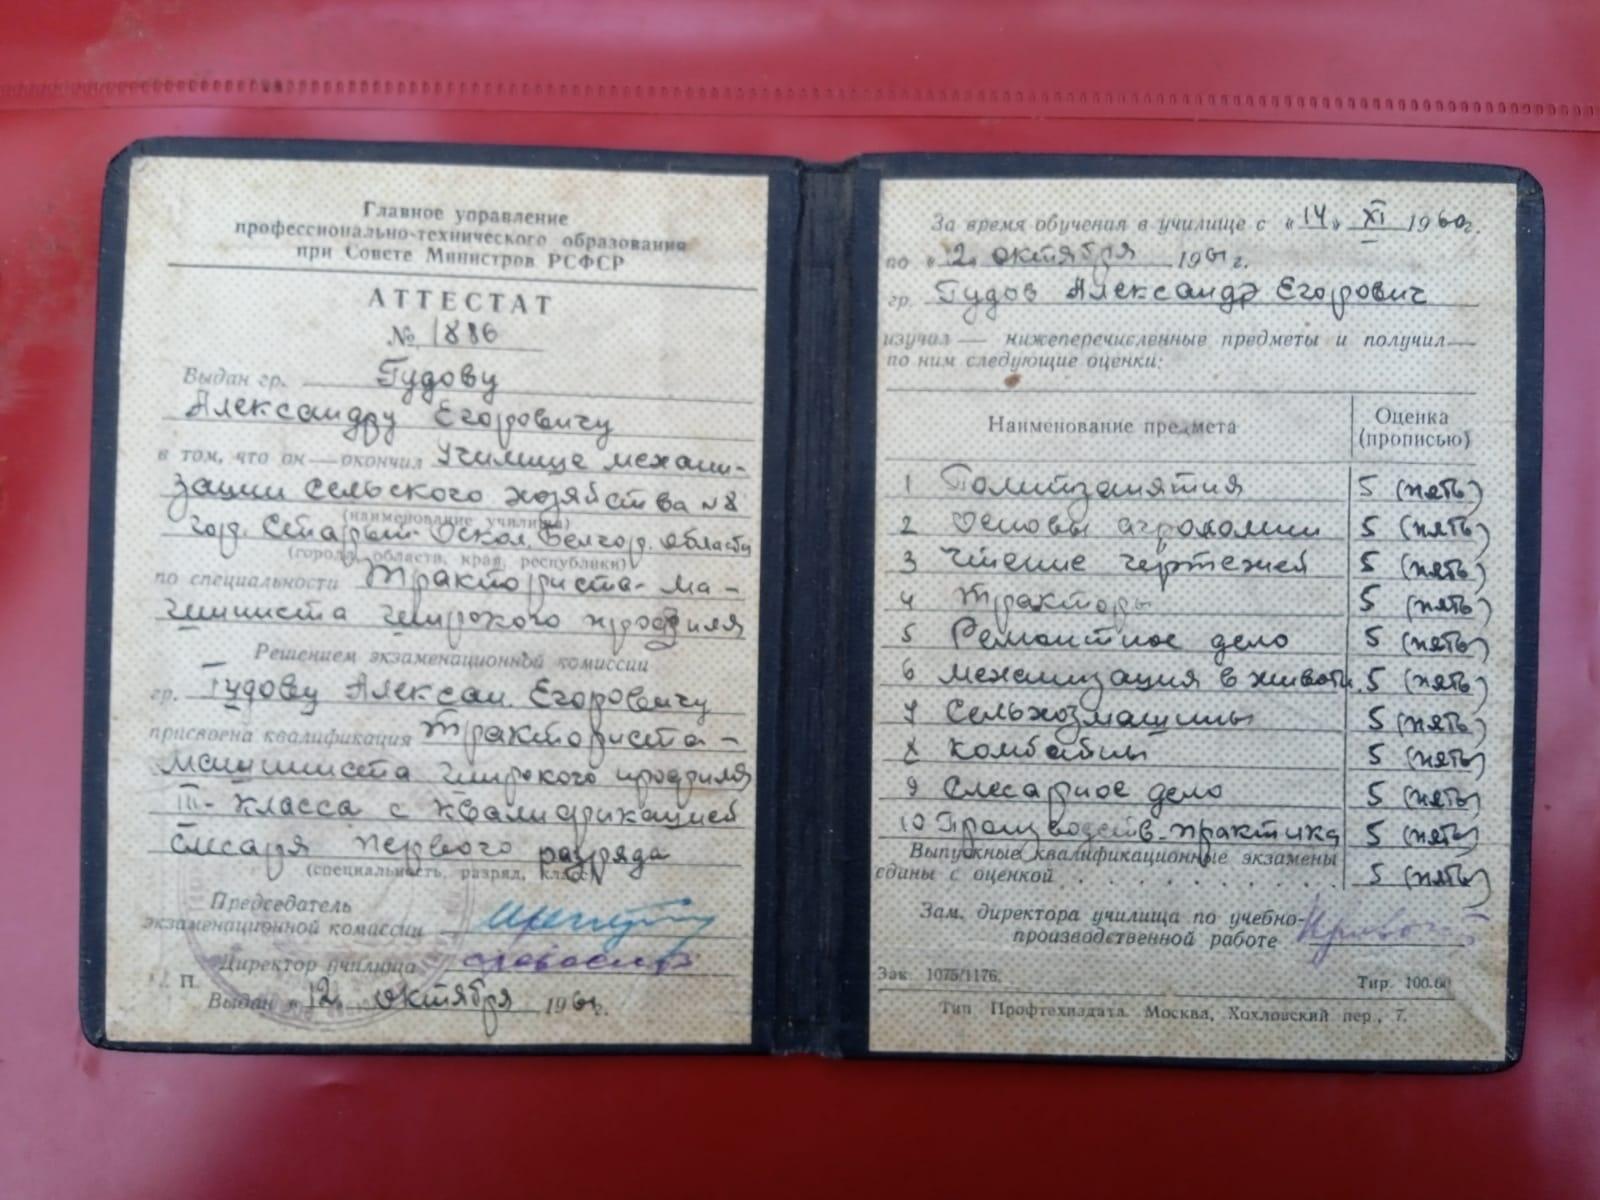 Главное управление
профессионально-технического образования
при Совете Министров РСФСР
АТТЕСТАТ
№ 1886
Выдан гр. Гудову
Александру Егоровичу
в том, что он — окончил Училище механи-
зации сельского хозяйства №8
(наименование училища)
гор. Старый-Оскол, Белгор. области
(города, области, края, республики)
по специальности Тракториста-ма-
шиниста широкого профиля
Решением экзаменационной комиссии
гр. Гудову Алексан. Егоровичу
присвоена квалификация Тракториста-
машиниста широкого профиля
III-класса с квалификацией
слесаря первого разряда
(специальность, разряд, класс)
Председатель
экзаменационной комиссии
Директор училища
М. П.
Выдан « 12 » октября 1961г.
За время обучения в училище с «14» XI 1960г.
по «2» октября 1961г.
гр. Гудов Александр Егорович
изучал — нижеперечисленные предметы и получил —
по ним следующие оценки:
Наименование предмета Оценка (прописью)
1 Политзанятия 5 (пять)
2 Основы агрономии 5 (пять)
3 Чтение чертежей 5 (пять)
4 Тракторы 5 (пять)
5 Ремонтное дело 5 (пять)
6 Механизация в животн. 5 (пять)
7 Сельхозмашины 5 (пять)
8 Комбайны 5 (пять)
9 Слесарное дело 5 (пять)
10 Производств. практика 5 (пять)
Выпускные квалификационные экзамены
сданы с оценкой . . . . . . . . . . 5 (пять)
Зам. директора училища по учебно-
производственной работе
Зак. 1075/1176. Тир. 100.00
Тип. Профтехиздата. Москва, Хохловский пер., 7.